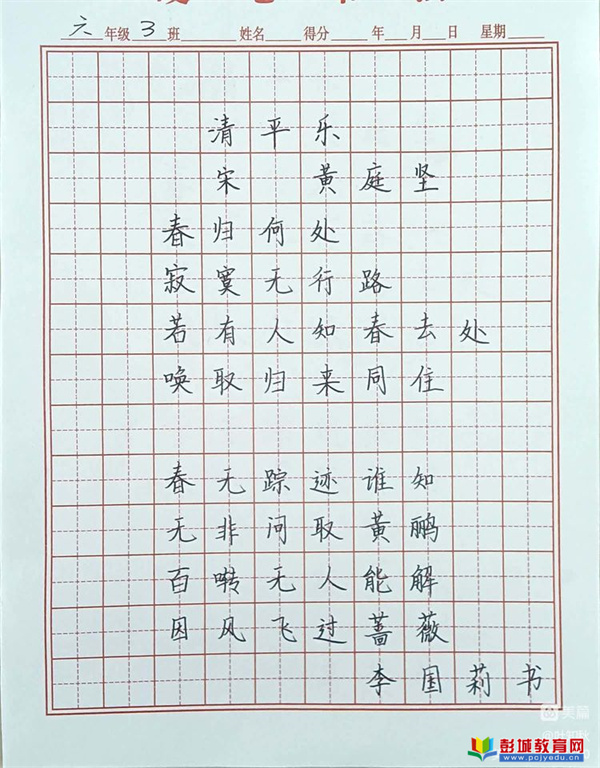 六年级 3 班 姓名 得分 年 月 日 星期
清平乐
宋 黄庭坚
春归何处
寂寞无行路
若有人知春去处
唤取归来同住
春无踪迹谁知
无非问取黄鹂
百啭无人能解
因风飞过蔷薇
李国莉书
美篇
彭城教育网
www.pcjyedu.cn